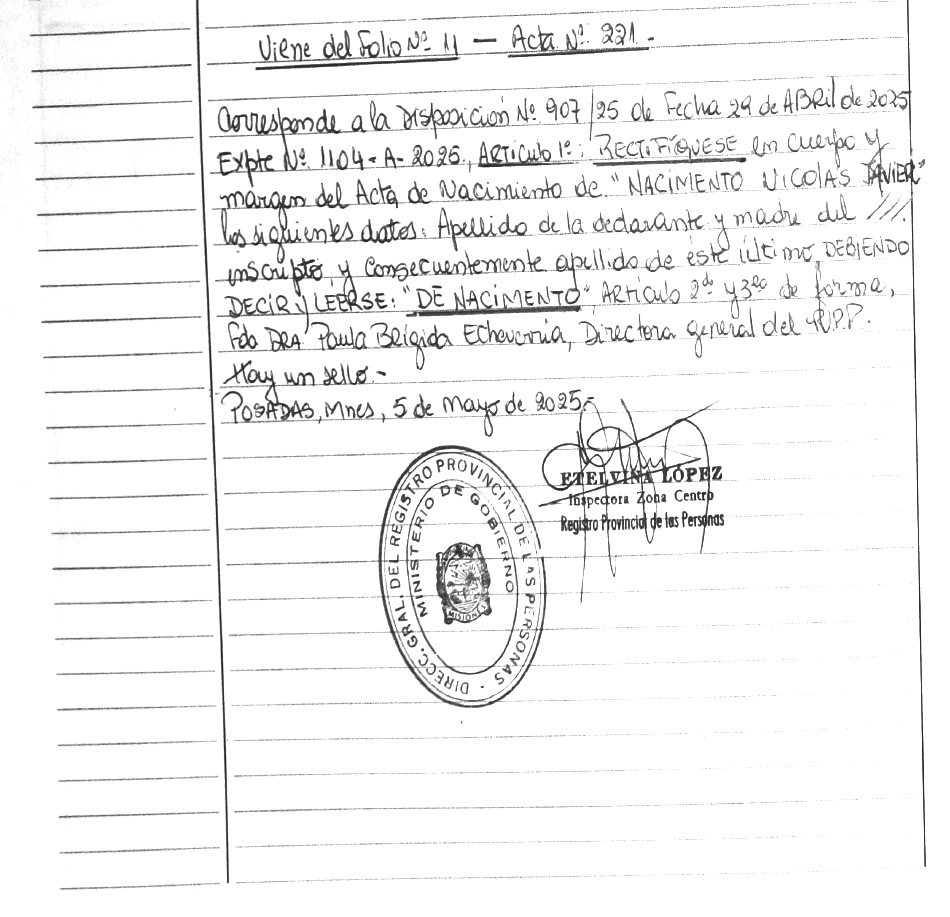 Viene del Folio Nº 11 — Acta Nº 221.-
Corresponde a la Disposición Nº 907/25 de Fecha 29 de ABRil de 2025
Expte Nº 1104-A-2025, ARTiculo 1º: RECTIFÍQUESE en Cuerpo y
margen del Acta de Nacimiento de "NACIMENTO NICOLÁS JAVIER"
los siguientes datos: Apellido de la declarante y madre del ///.
inscripto, y consecuentemente apellido de éste último, DEBIENDO
DECIR y LEERSE: "DE NACIMENTO", Artículo 2do y 3ro de forma,
Fdo DRA Paula Brígida Echeverria, Directora general del R.P.P.
Hay un sello.-
POSADAS, Mnes, 5 de Mayo de 2025.-
ETELVINA LÓPEZ
Inspectora Zona Centro
Registro Provincial de las Personas
DIRECC. GRAL. DEL REGISTRO PROVINCIAL DE LAS PERSONAS -
MINISTERIO DE GOBIERNO
MISIONES